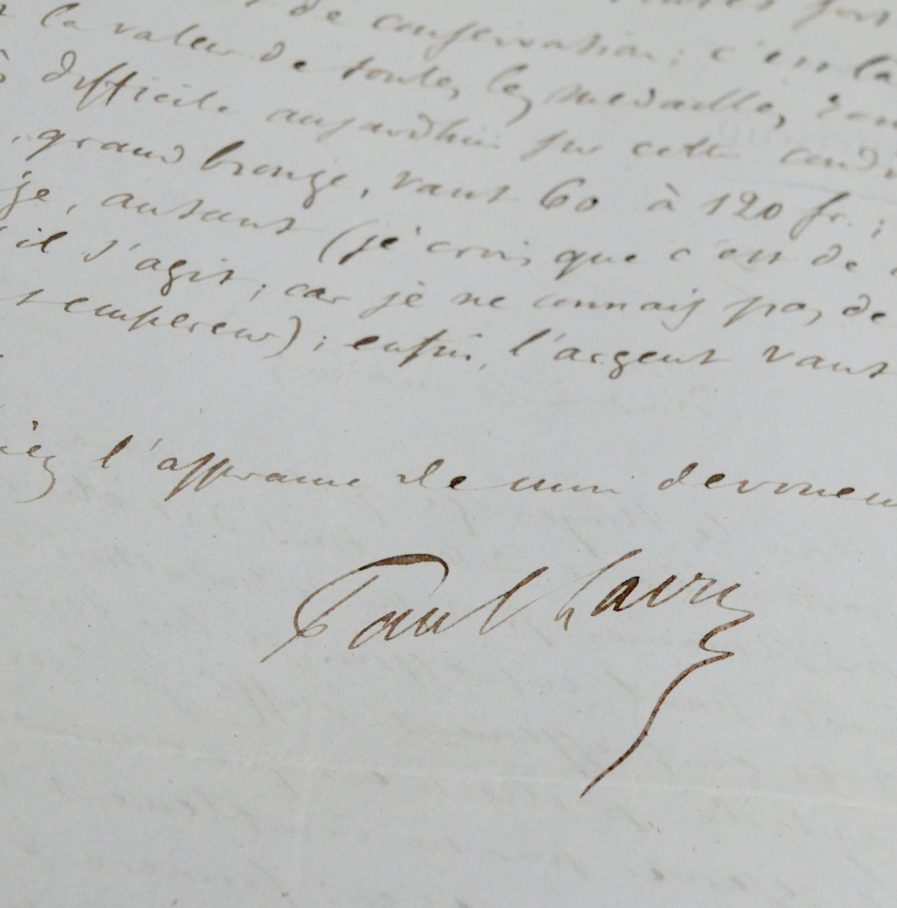 de conservation ; c'est la
la valeur de toutes les médailles,
difficile aujourd'hui sur cette condi
grand bronze, vaut 60 à 120 fr. ;
ge, autant (je crois que c'est de
il s'agit, car je ne connais pas de
empereur) ; enfin, l'argent vaut
l'assurance de mon dévouem
Paul Lavry